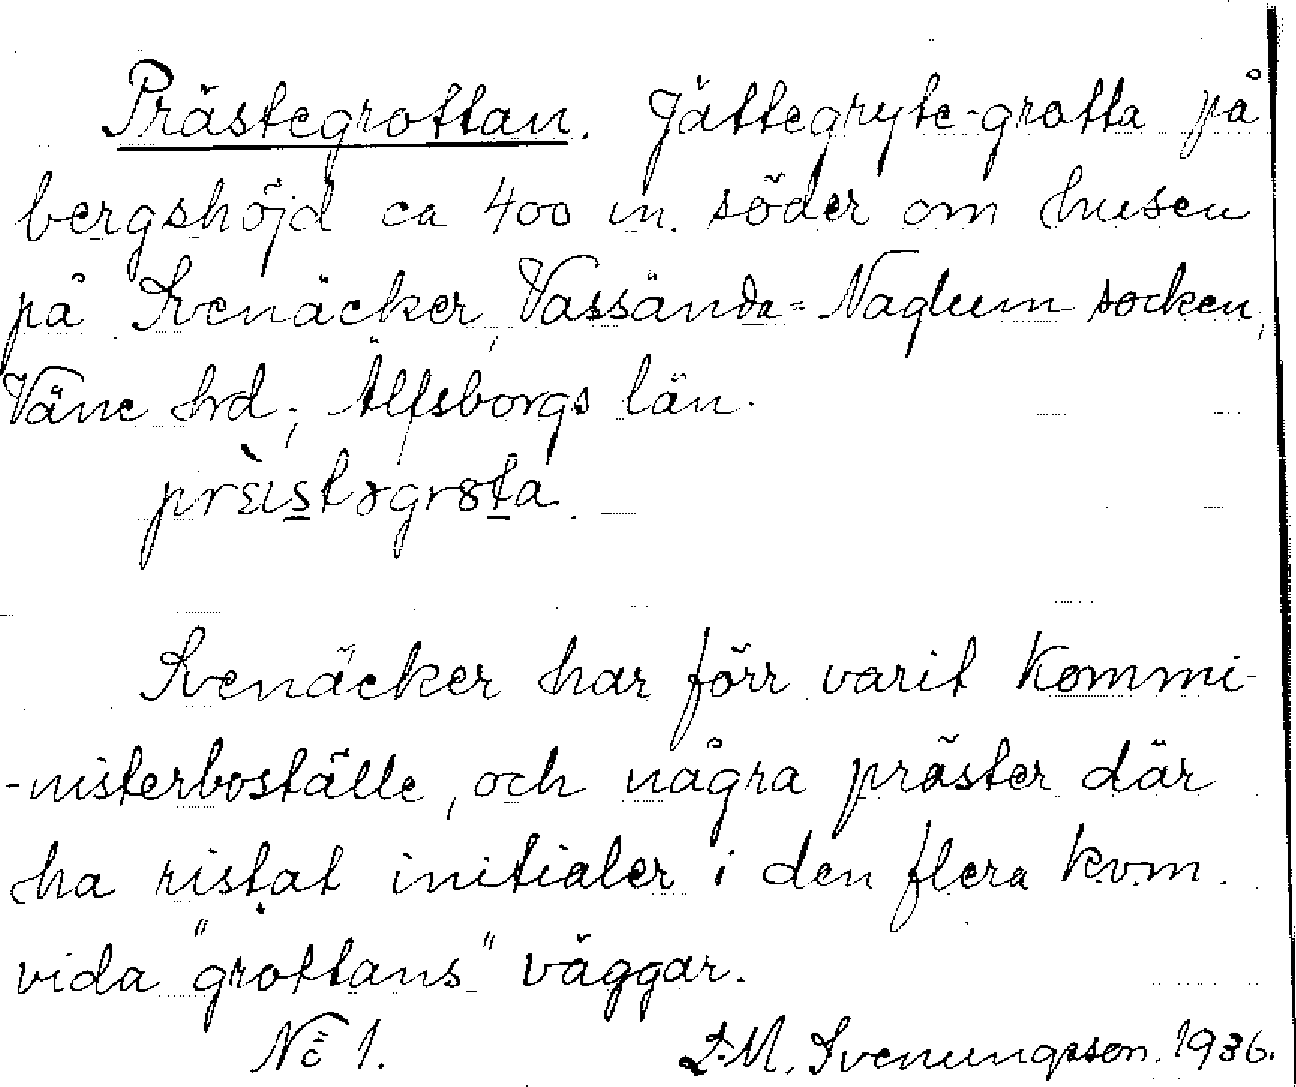 Prästegrottan. Jättegryte-grotta på
bergshöjd ca 400 m. söder om husen
på Svenäcker, Vassända-Naglum socken,
Väne hrd, Älfsborgs län.
Svenäcker har förr varit kommi-
-nisterboställe, och några präster där
ha ristat initialer i den flera kv.m.
vida "grottans" väggar.
No 1. S.M. Svenungsson. 1936.